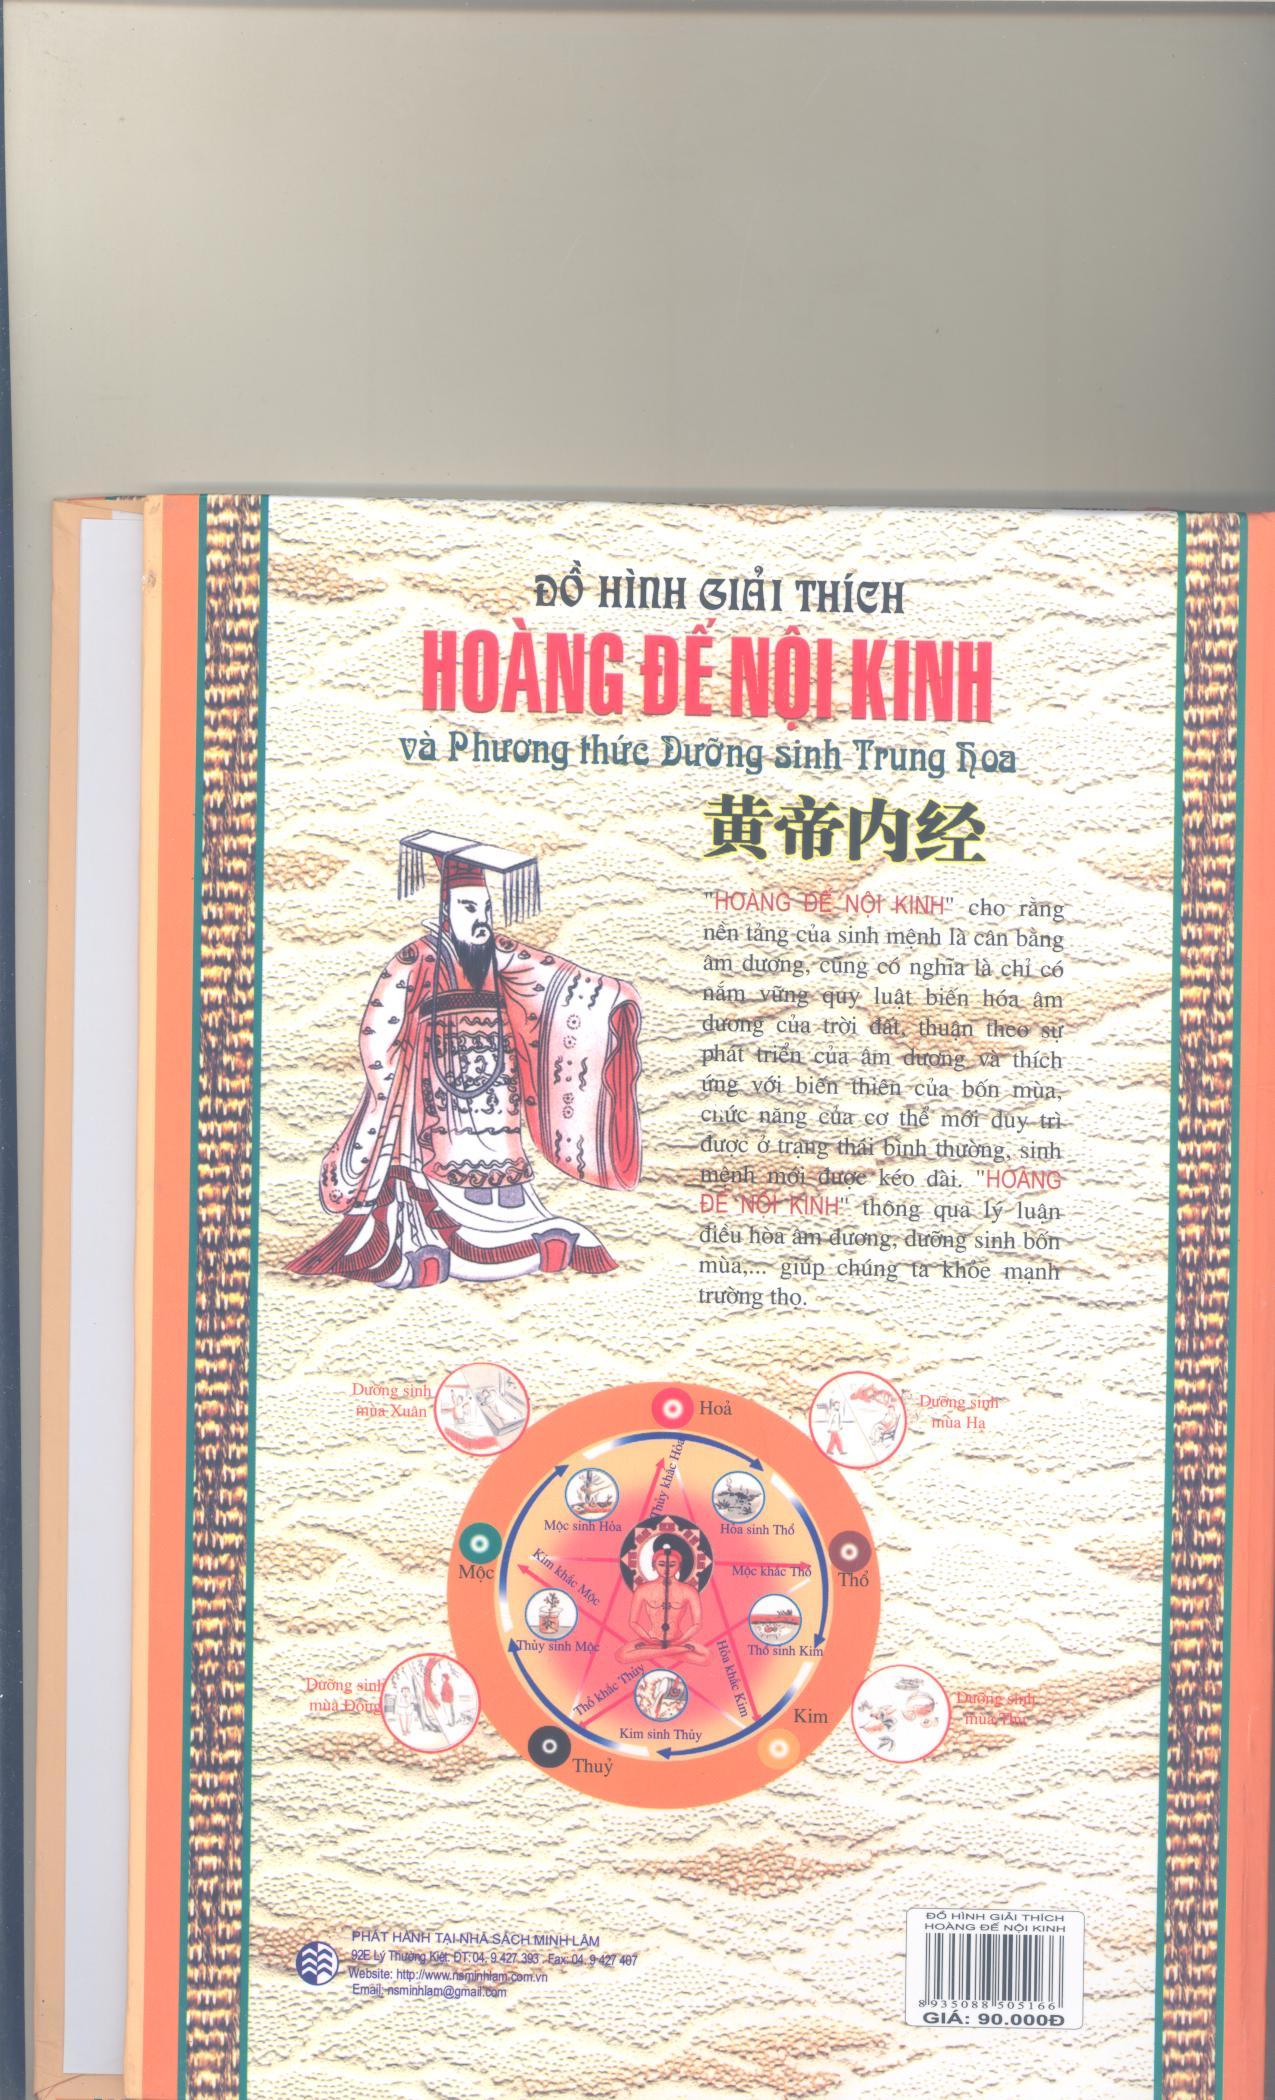 ĐỒ HÌNH GIẢI THÍCH
HOÀNG ĐẾ NỘI KINH
và Phương thức Dưỡng sinh Trung Hoa
黄帝内经
"HOÀNG ĐẾ NỘI KINH" cho rằng
nền tảng của sinh mệnh là cân bằng
âm dương, cũng có nghĩa là chỉ có
nắm vững quy luật biến hóa âm
dương của trời đất, thuận theo sự
phát triển của âm dương và thích
ứng với biến thiên của bốn mùa,
chức năng của cơ thể mới duy trì
được ở trạng thái bình thường, sinh
mệnh mới được kéo dài. "HOÀNG
ĐẾ NỘI KINH" thông qua lý luận
điều hòa âm dương, dưỡng sinh bốn
mùa,... giúp chúng ta khỏe mạnh
trường thọ.
Dưỡng sinh
mùa Xuân
Hoả
Dưỡng sinh
mùa Hạ
Thủy khắc Hỏa
Mộc sinh Hỏa
Hỏa sinh Thổ
Mộc
Kim khắc Mộc
Mộc khắc Thổ
Thổ
Thủy sinh Mộc
Thổ sinh Kim
Thổ khắc Thủy
Hỏa khắc Kim
Dưỡng sinh
mùa Đông
Kim sinh Thủy
Kim
Dưỡng sinh
mùa Thu
Thuỷ
PHÁT HÀNH TẠI NHÀ SÁCH MINH LÂM
92E Lý Thường Kiệt. ĐT: 04. 9 427 393 . Fax: 04. 9 427 407
Website: http://www.nsminhlam.com.vn
Email: nsminhlam@gmail.com
ĐỒ HÌNH GIẢI THÍCH
HOÀNG ĐẾ NỘI KINH
8 935088 505166
GIÁ: 90.000Đ